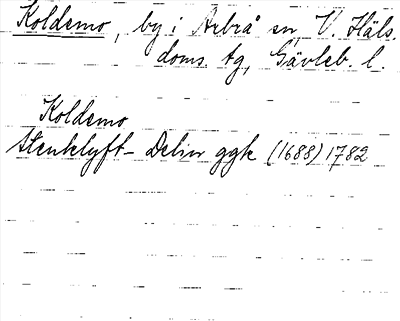 Koldemo, by i Arbrå sn, V. Häls.
doms. tg, Gävleb. l.
Koldemo
Stenklyft – Delin ggk (1688) 1782